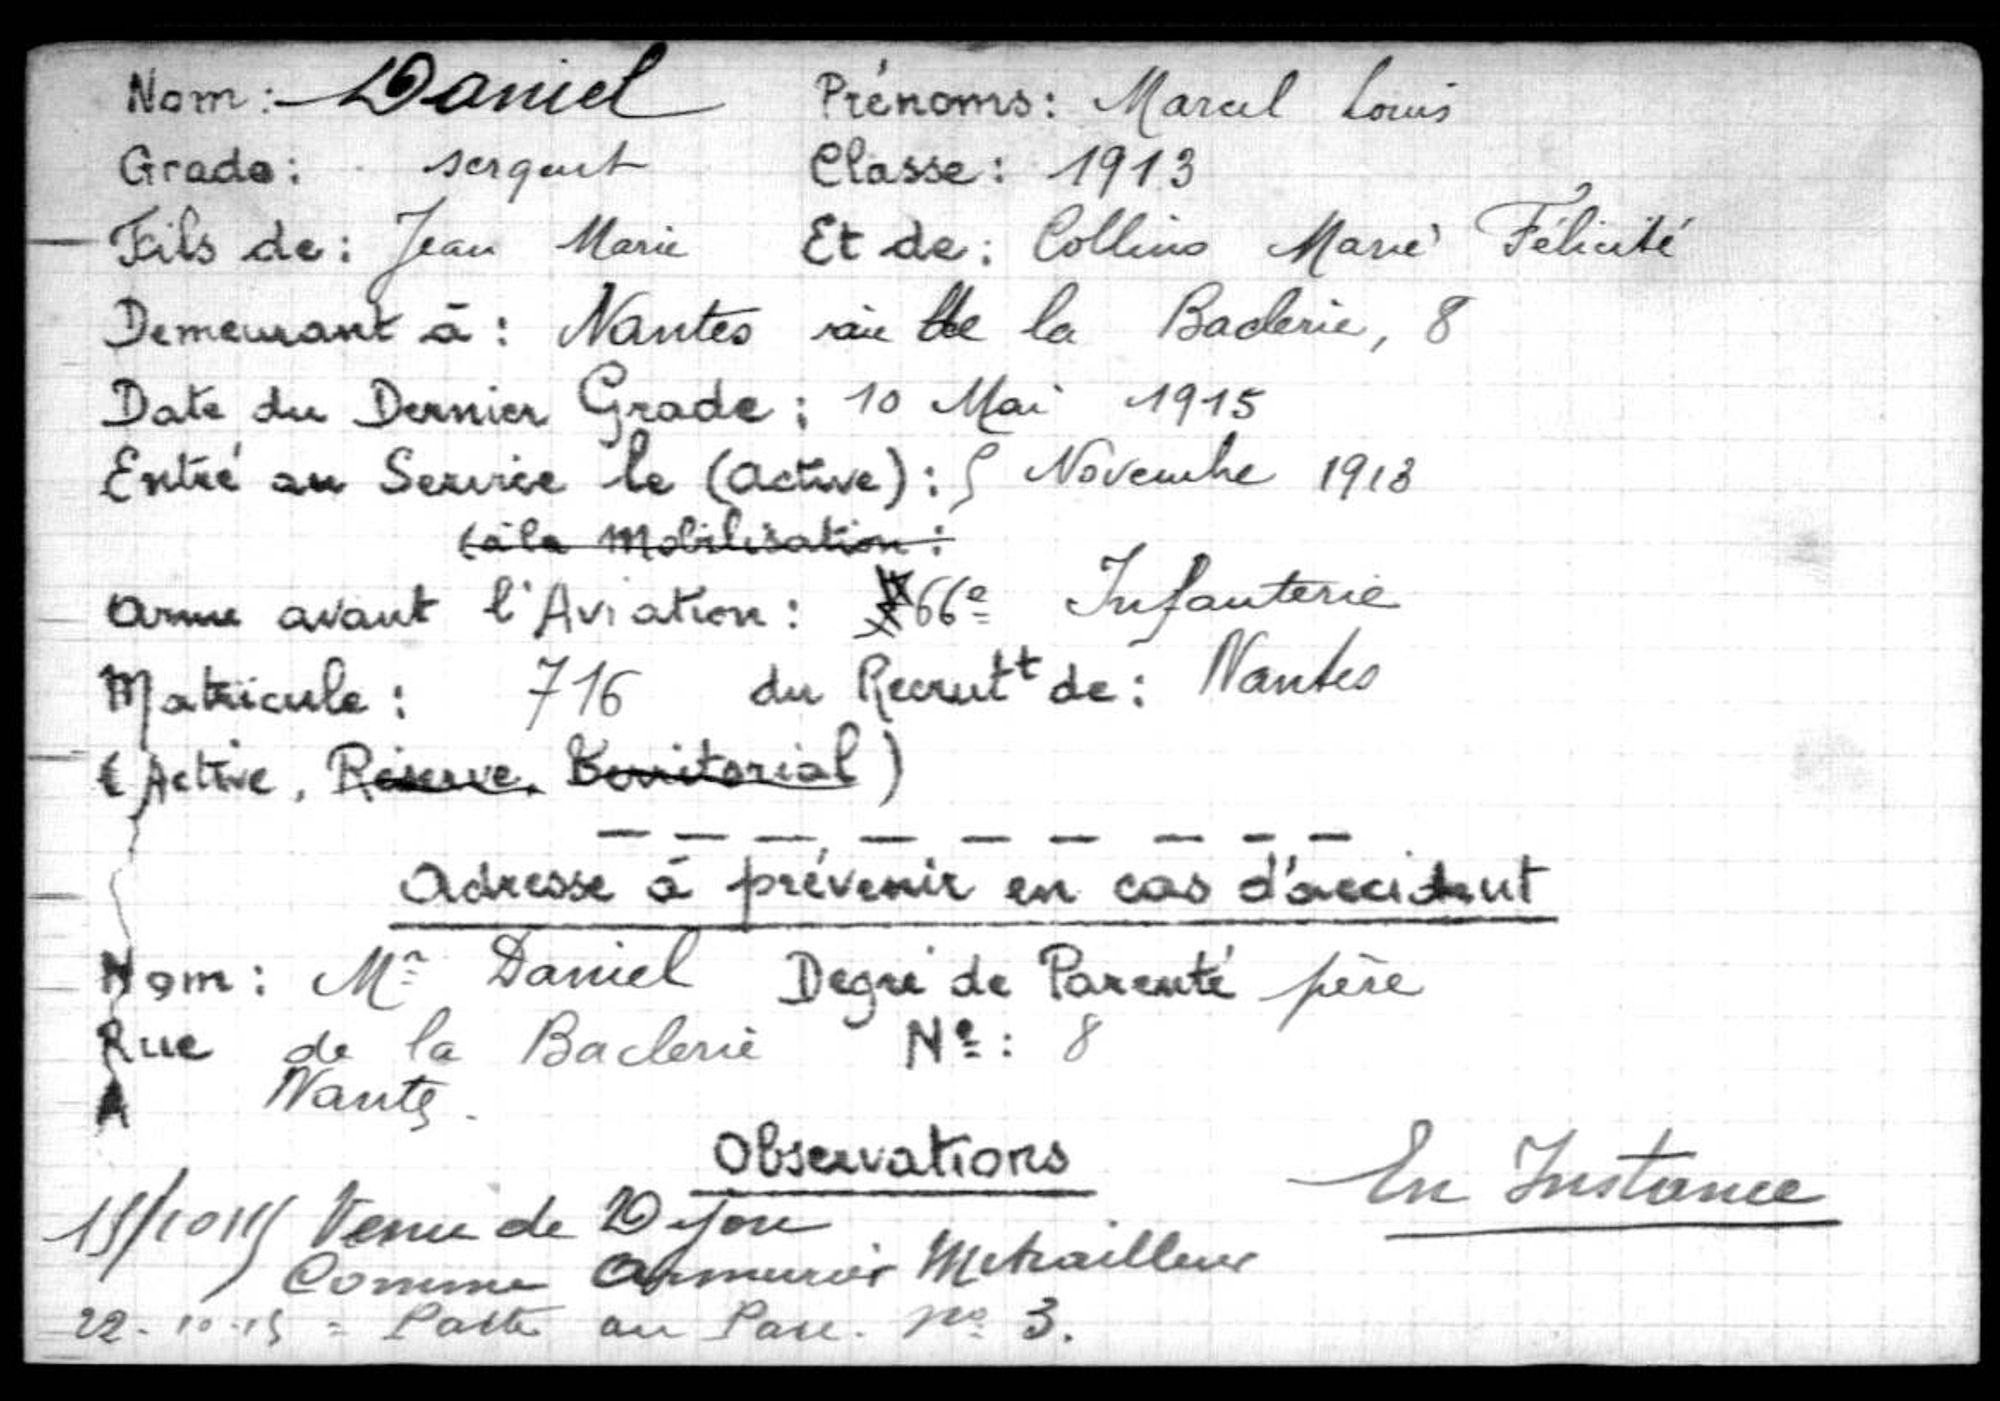 Nom: Daniel Prénoms: Marcel Louis
Grade: sergent Classe: 1913
Fils de: Jean Marie Et de: Collino Marie Félicité
Demeurant à: Nantes rue de la Baclerie, 8
Date du Dernier Grade: 10 Mai 1915
Entré au Service le (active): Novembre 1913
(à la Mobilisation:
Arme avant l'Aviation: 66e Infanterie
Matricule: 716 du Recrutt de: Nantes
(Active, Réserve, Territorial)
Adresse à prévenir en cas d'accident
Nom: Mr Daniel Degré de Parenté père
Rue de la Baclerie No: 8
A Nantes.
Observations
En Instance
15/10 15 Venu de Dijon
Comme Armurier Mitrailleur
22-10-15 = au Parc. no 3.